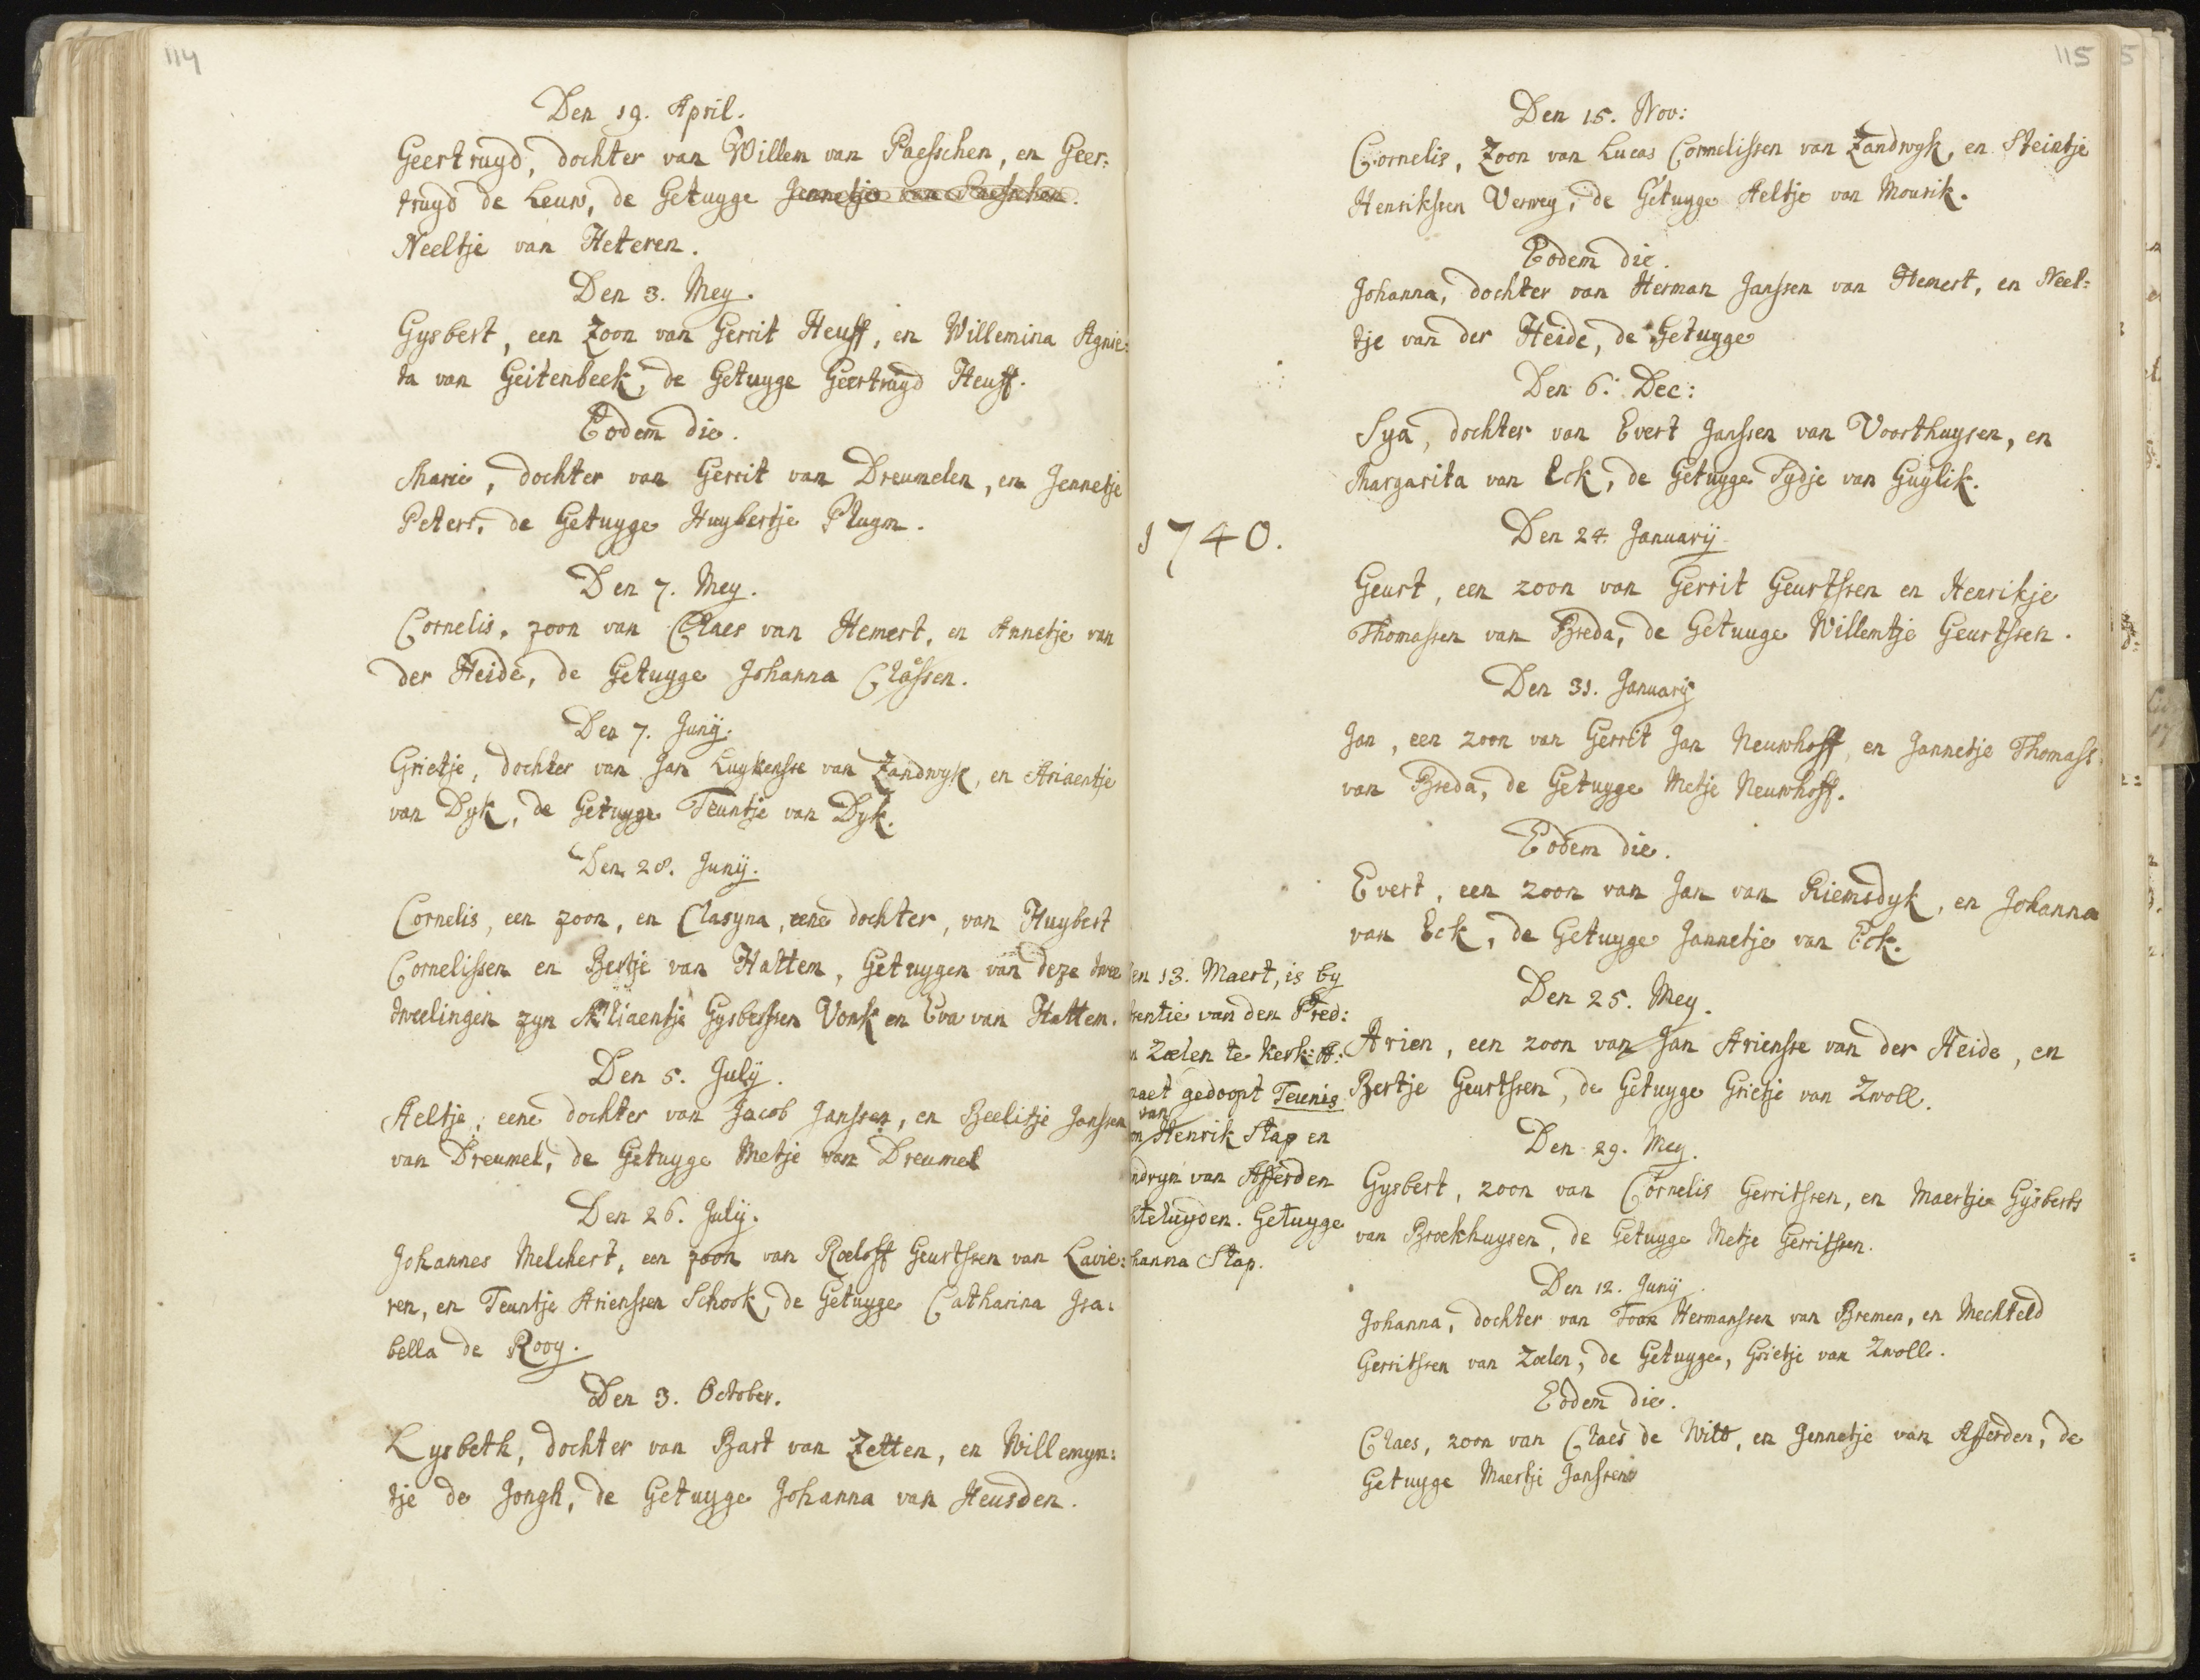 114
Den 19. April.
Geertruyd, dochter van Willem van Paesschen, en Geer:
truyd de Leuw, de Getuyge Jennetje van Paesschen.
Neeltje van Heteren.
Den 3. Mey.
Gysbert, een Zoon van Gerrit Heuff, en Willemina Agnie:
ta van Geitenbeek, de Getuyge Geertruyd Heuff.
Eodem die.
Marie, dochter van Gerrit van Dreumelen, en Jennetje
Peters, de Getuyge Huybertje Pluym.
Den 7. Mey.
Cornelis, zoon van Claes van Hemert, en Annetje van
der Heide, de Getuyge Johanna Classen.
Den 7. Junij.
Grietje, dochter van Jan Luykensse van Zandwyk, en Ariaentje
van Dyk, de Getuyge Teuntje van Dyk.
Den 28. Junij.
Cornelis, een zoon, en Clasyna, eene dochter, van Huybert
Cornelissen en Bertje van Hattem, Getuygen van deze twee
tweelingen zyn Gysbertsen Vonk en Eva van Hattem.
Den 5. Julij.
Aeltje, eene dochter van Jacob Janssen, en Beelitje Janssen
van Dreumel, de Getuyge Metje van Dreumel
Den 26. Julij.
Johannes Melchert, een zoon van Roeloff Geurtssen van Lavie:
ren, en Teuntje Arienssen Schook, de Getuyge Catharina Isa:
bella de Rooy.
Den 3. October.
Lysbeth, dochter van Bart van Zetten, en Willemyn:
tje de Jongh, de Getuyge Johanna van Heusden.
115
Den 15. Nov:
Cornelis, Zoon van Lucas Cornelissen van Zandwyk, en Steintje
Henrikssen Verwey, de Getuyge Aeltje van Mourik.
Eodem die.
Johanna, dochter van Herman Janssen van Hemert, en Neel:
tje van der Heide, de Getuyge
Den 6. Dec:
Sya, dochter van Evert Janssen van Voorthuysen, en
Margarita van Eck, de Getuyge Sydje van Guylik.
1740.
Den 24. Januarij
Geurt, een zoon van Gerrit Geurtssen en Henrikje
Thomassen van Breda, de Getuuge Willemtje Geurtssen.
Den 31. Januarij
Jan, een zoon van Gerrit Jan Neuwhoff, en Jannetje Thomass.
van Breda, de Getuyge Metje Neuwhoff.
Eodem die.
Evert, een zoon van Jan van Riemsdyk, en Johanna
van Eck, de Getuyge Jannetje van Eck.
en 13. Maert, is by
entie van den Pred:
Zoelen te Kerk: A:
maet gedoopt Teunis
van
Henrik Stap en
ndryn van Afferden
teluyden. Getuyge
hanna Stap.
Den 25. Mey.
Arien, een zoon van Jan Ariensse van der Heide, en
Bertje Geurtssen, de Getuyge Grietje van Zwoll.
Den 29. Mey.
Gysbert, zoon van Cornelis Gerritssen, en Maertje Gysberts
van Broekhuysen, de Getuyge Metje Gerritssen.
Den 12. Junij
Johanna, dochter van Toon Hermanssen van Bremen, en Mechteld
Gerritssen van Zoelen, de Getuyge, Grietje van Zwoll.
Eodem die.
Claes, zoon van Claes de Witt, en Jennetje van Afferden, de
Getuyge Maertje Janssen